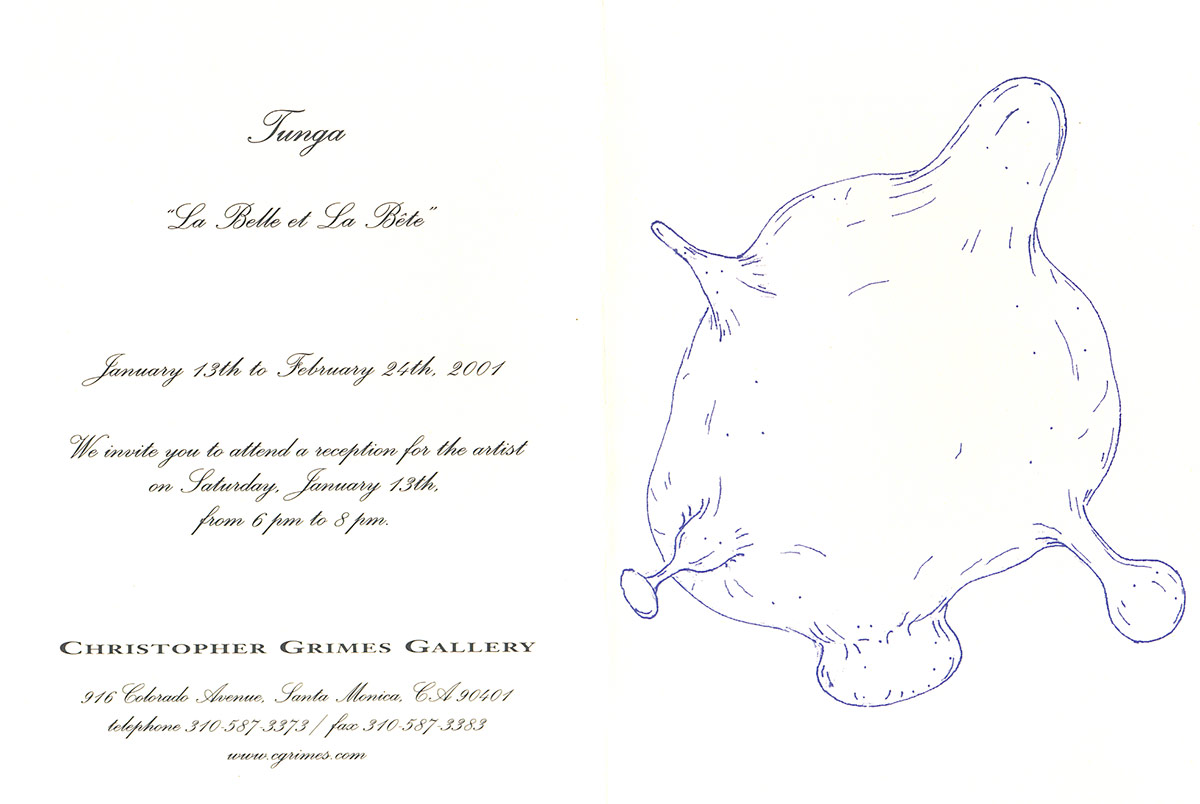 Tunga
"La Belle et La Bête"
January 13th to February 24th, 2001
We invite you to attend a reception for the artist
on Saturday, January 13th,
from 6 pm to 8 pm.
CHRISTOPHER GRIMES GALLERY
916 Colorado Avenue, Santa Monica, CA 90401
telephone 310-587-3373 / fax 310-587-3383
www.cgrimes.com